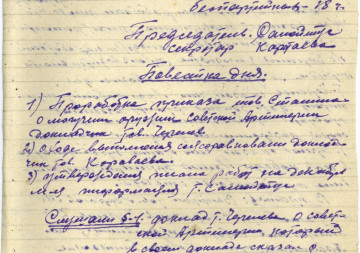 беспартийных - 18 ч.
Председатель. Самойлин
секретар Картаева
Повестка дня.
1) Проработка приказа тов. Сталина
о могучем оружии советской Артиллерии
докладчик тов. Чернов
2) О ходе выполнения соцсоревнования доклад
чик тов. Караваева
3) утверждения плана работ на декабрь
Слушали § 1. доклад т. Чернова О совет
ской Артиллерии, который
в своем докладе сказал о